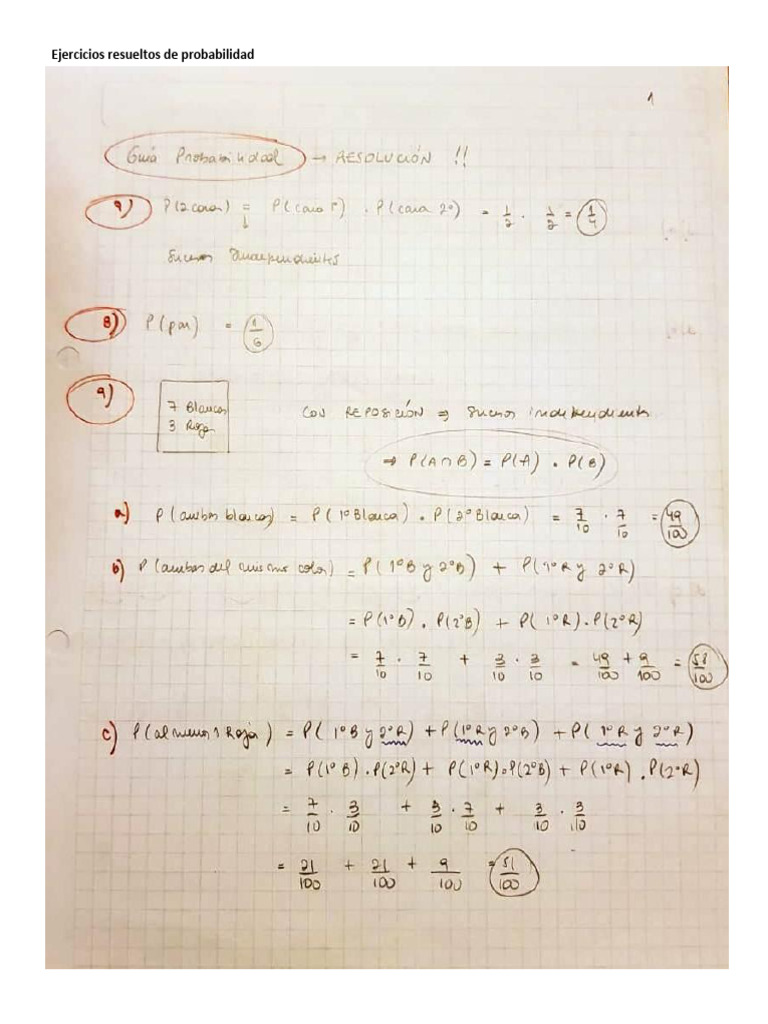 Ejercicios resueltos de probabilidad
1
Guía Probabilidad → RESOLUCIÓN !!
P(2 caras) = P(cara 1º) . P(cara 2º) = 1/2 . 1/2 = 1/4
Sucesos Independientes
8) P(par) = 1/6
9) 7 Blancas
3 Rojas
CON REPOSICIÓN ⇒ Sucesos independientes
⇒ P(A∩B) = P(A) . P(B)
a) P(ambas blancas) = P(1º Blanca) . P(2º Blanca) = 7/10 . 7/10 = 49/100
b) P(ambas del mismo color) = P(1ºB y 2ºB) + P(1ºR y 2ºR)
= P(1ºB) . P(2ºB) + P(1ºR) . P(2ºR)
= 7/10 . 7/10 + 3/10 . 3/10 = 49/100 + 9/100 = 58/100
c) P(al menos 1 Roja) = P(1ºB y 2ºR) + P(1ºR y 2ºB) + P(1ºR y 2ºR)
= P(1ºB) . P(2ºR) + P(1ºR) . P(2ºB) + P(1ºR) . P(2ºR)
= 7/10 . 3/10 + 3/10 . 7/10 + 3/10 . 3/10
= 21/100 + 21/100 + 9/100 = 51/100